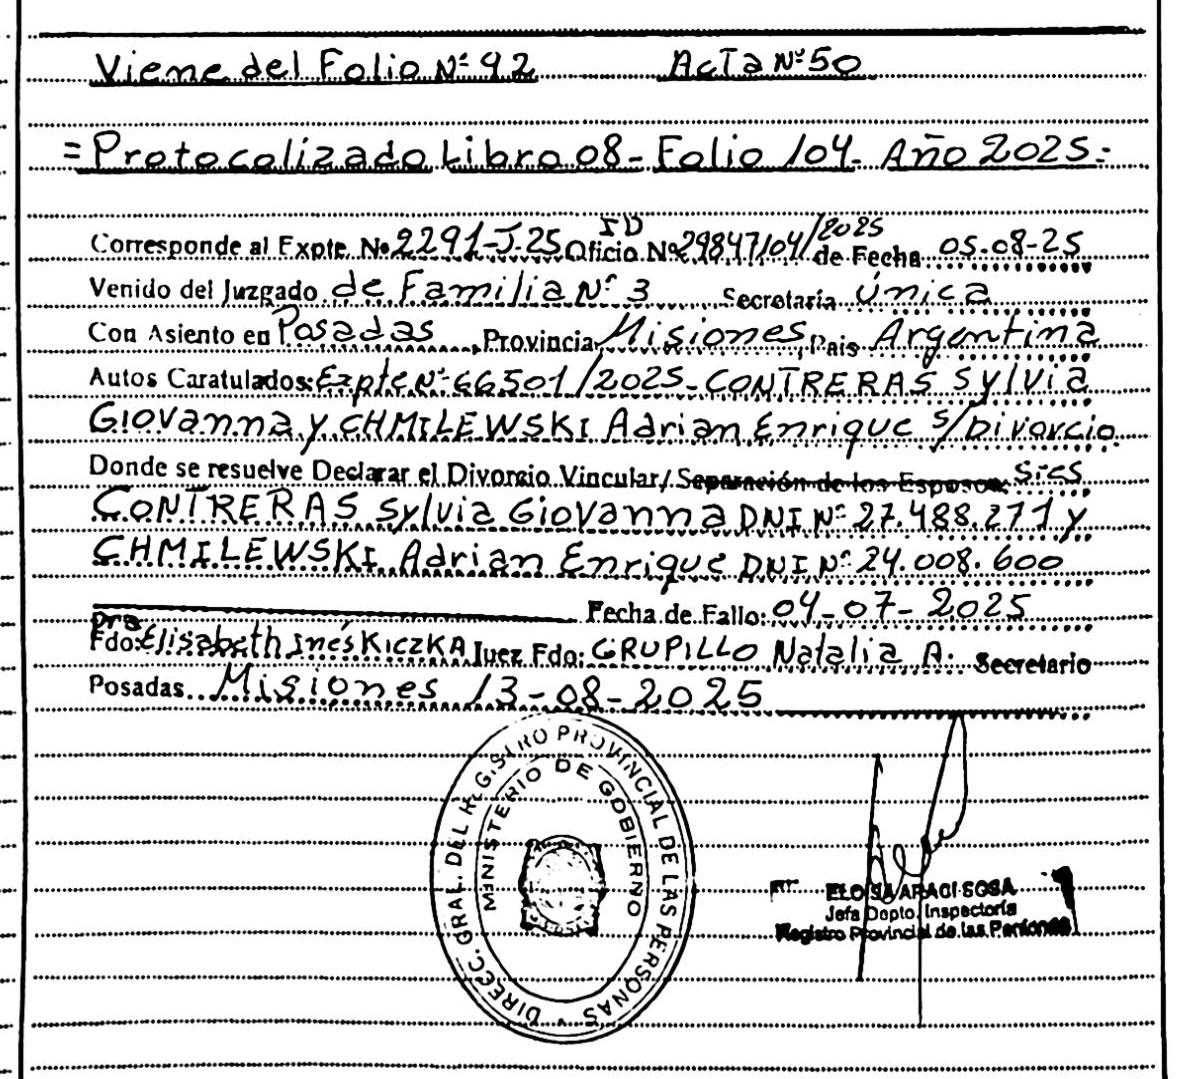 Viene del Folio Nº 92 Acta Nº 50
= Protocolizado Libro 08 - Folio 104 - Año 2025 -
Corresponde al Expte. Nº 2291-J-25 Oficio Nº ID 29847104/2025 de Fecha 05-08-25
Venido del Juzgado de Familia Nº 3 Secretaría Única
Con Asiento en Posadas, Provincia Misiones, País Argentina
Autos Caratulados: Expte Nº 66501/2025 - CONTRERAS Sylvia
Giovanna y CHMILEWSKI Adrian Enrique s/ Divorcio
Donde se resuelve Declarar el Divorcio Vincular/ Separación de los Esposos: Sres
CONTRERAS Sylvia Giovanna DNI Nº 27.488.271 y
CHMILEWSKI Adrian Enrique DNI Nº 24.008.600
Fecha de Fallo: 04-07-2025
Fdo: Dra Elisabeth Inés KICZKA Juez Fdo: GRUPILLO Natalia A. Secretario
Posadas Misiones 13-08-2025
DIRECC. GRAL. DEL REGISTRO PROVINCIAL DE LAS PERSONAS
MINISTERIO DE GOBIERNO
ELOISA ARACI SOSA
Jefa Dpto. Inspectoría
Registro Provincial de las Personas